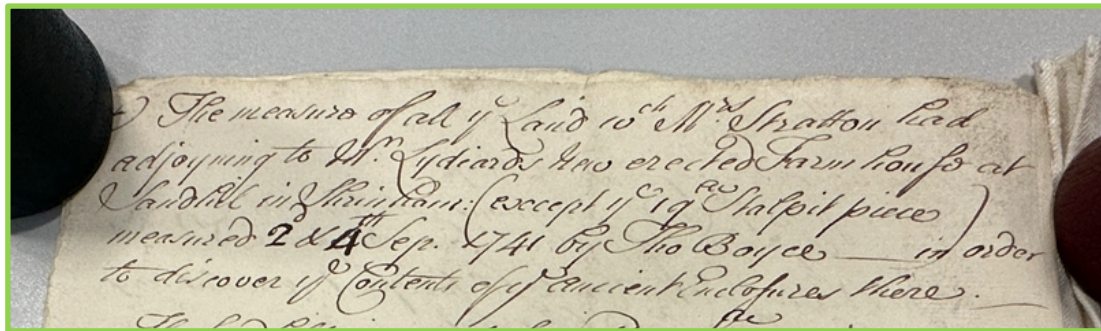 The measure of all yᵉ Land wᶜʰ Mʳˢ Stratton had
adjoyning to Mʳ Lydiards New erected Farm house at
Sandhil in Shrinham: (except yᵉ 19ᵃᶜ Stalpit piece)
measured 2 & 4ᵗʰ Sep. 1741 by Tho Boyce — in order
to discover yᵉ Contents of yᵉ Ancient Enclosures there.